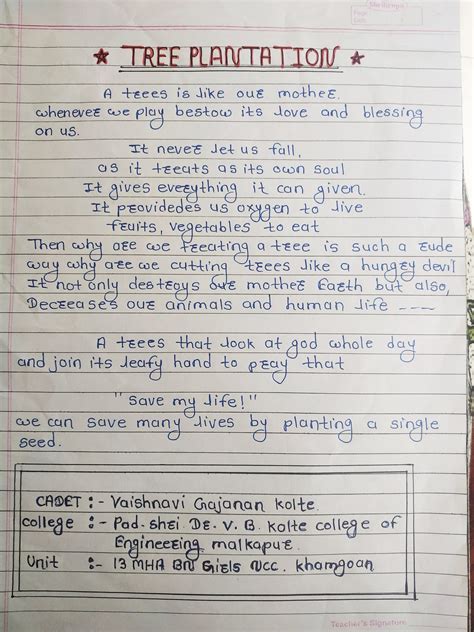 Page
Date
★ TREE PLANTATION ★
A trees is like our mother.
whenever we play bestow its love and blessing
on us.
It never let us fall,
as it treats as its own soul
It gives everything it can given.
It providedes us oxygen to live
fruits, vegetables to eat
Then why are we treating a tree is such a rude
way why are we cutting trees like a hungry devil
It not only destroys our mother Earth but also,
Decreases our animals and human life ----
A trees that look at god whole day
and join its leafy hand to pray that
"save my life!"
we can save many lives by planting a single
seed.
CADET :- Vaishnavi Gajanan kolte.
college :- Pad.shri Dr. V. B. kolte college of
Engineering, malkapur.
Unit :- 13 MHA BN Girls NCC. khamgoan
Teacher's Signature